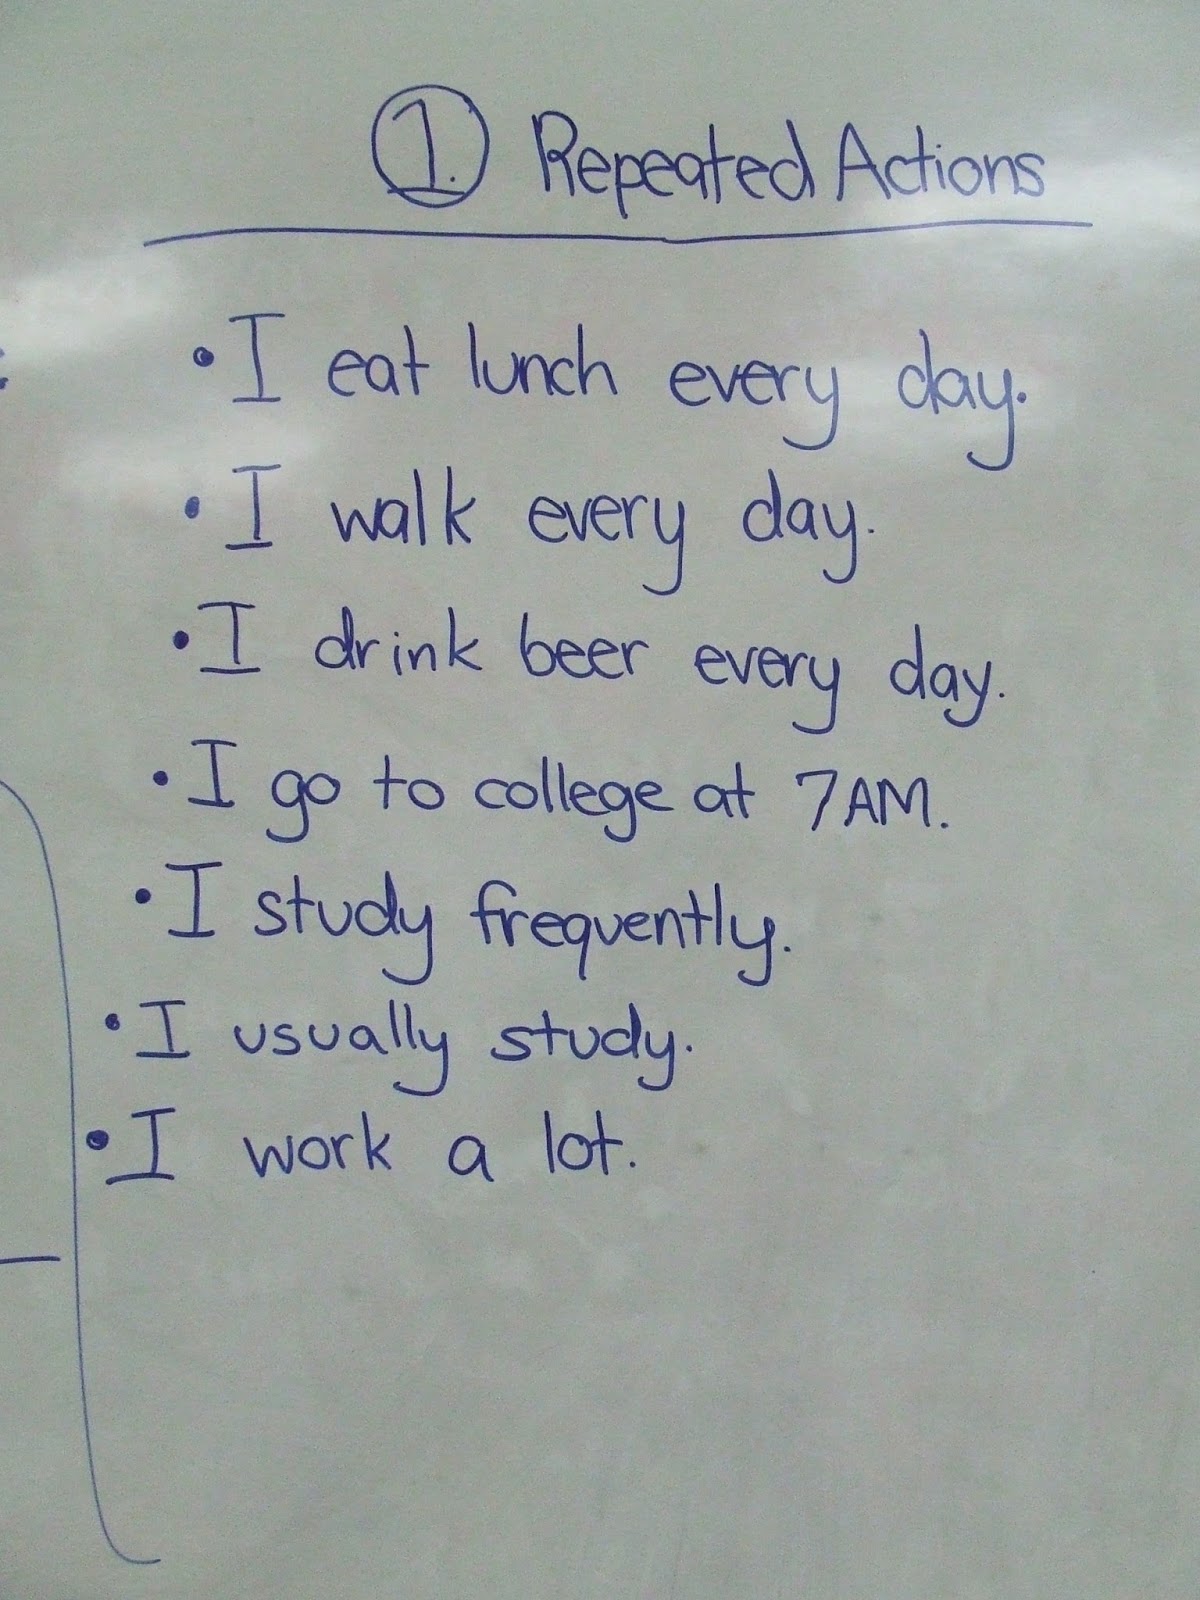 1. Repeated Actions
• I eat lunch every day.
• I walk every day.
• I drink beer every day.
• I go to college at 7AM.
• I study frequently.
• I usually study.
• I work a lot.